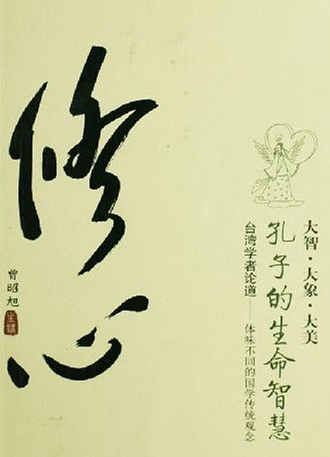 修心
曾昭旭
主讲
大智·大象·大美
孔子的生命智慧
台湾学者论道——体味不同的国学传统观念